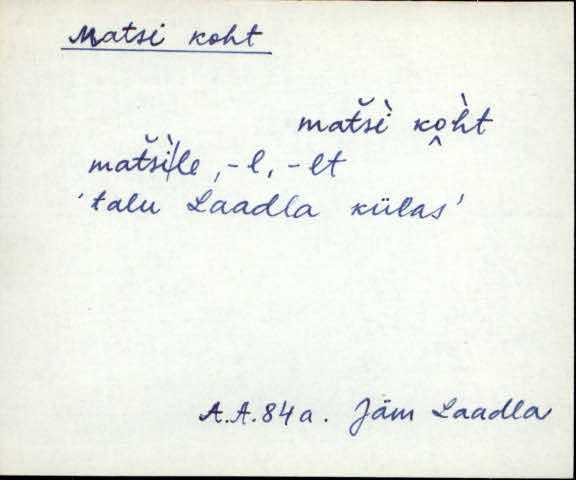 Matsi koht
mat̆sì ko̭h̀t
mat̆sì/le, -l, -lt
'talu Laadla külas'
A.A.84a. Jäm Laadla